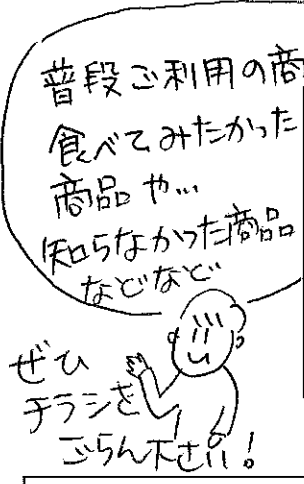 普段ご利用の商
食べてみたかった
商品や…
知らなかった商品
などなど
ぜひ
チラシを
ごらん下さい!